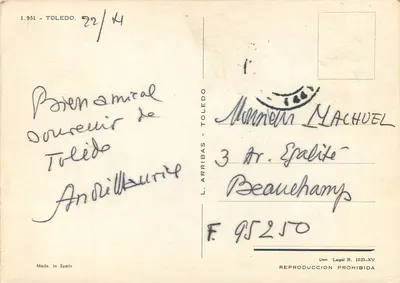 1.951 - TOLEDO.
22/4
Bien amical
souvenir de
Tolède
André Maurice
L. ARRIBAS - TOLEDO
Monsieur MACHUEL
3 Av. Egalité
Beauchamp
F. 95250
Made in Spain
REPRODUCCION PROHIBIDA